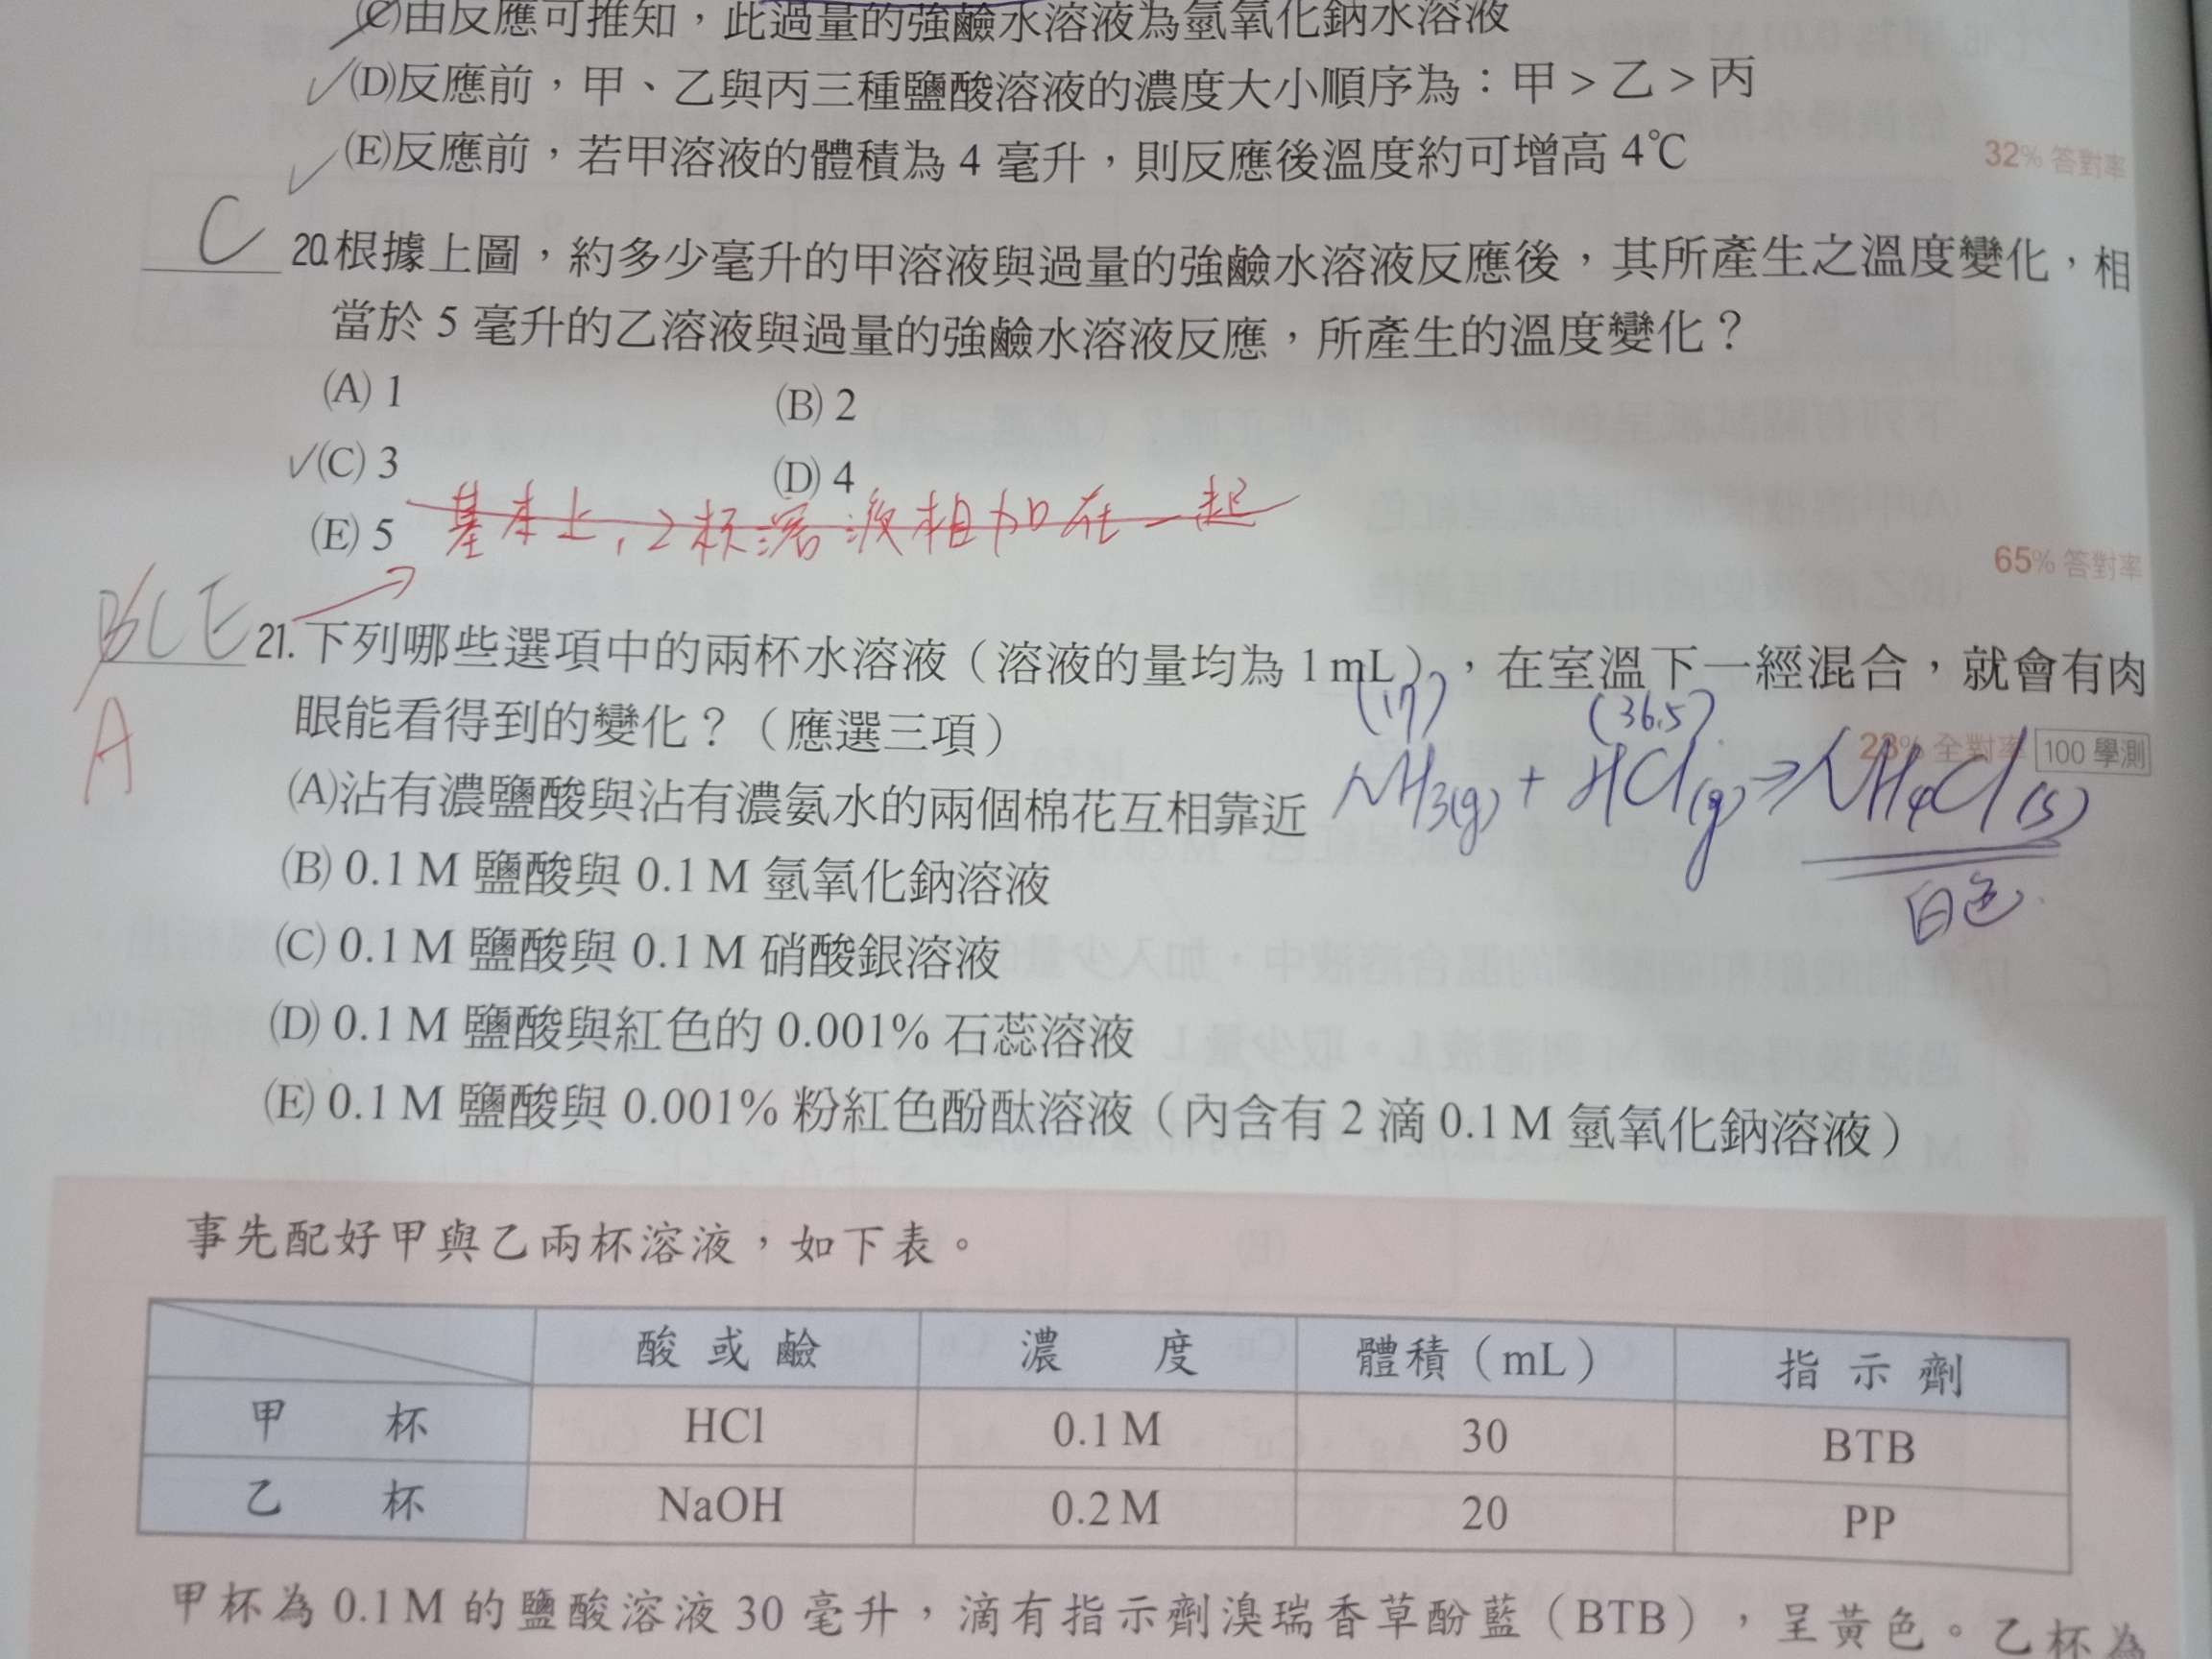 (C)由反應可推知，此過量的強鹼水溶液為氫氧化鈉水溶液
(D)反應前，甲、乙與丙三種鹽酸溶液的濃度大小順序為：甲＞乙＞丙
(E)反應前，若甲溶液的體積為 4 毫升，則反應後溫度約可增高 4℃
32% 答對率
C
20.根據上圖，約多少毫升的甲溶液與過量的強鹼水溶液反應後，其所產生之溫度變化，相
當於 5 毫升的乙溶液與過量的強鹼水溶液反應，所產生的溫度變化？
(A) 1
(B) 2
(C) 3
(D) 4
(E) 5
基本上，2杯溶液相加在一起
65% 答對率
BCE
A
21.下列哪些選項中的兩杯水溶液（溶液的量均為 1 mL），在室溫下一經混合，就會有肉
眼能看得到的變化？（應選三項）
(17) (36.5)
28% 全對率 100 學測
(A)沾有濃鹽酸與沾有濃氨水的兩個棉花互相靠近
NH3(g) + HCl(g) → NH4Cl(s)
白色
(B) 0.1 M 鹽酸與 0.1 M 氫氧化鈉溶液
(C) 0.1 M 鹽酸與 0.1 M 硝酸銀溶液
(D) 0.1 M 鹽酸與紅色的 0.001% 石蕊溶液
(E) 0.1 M 鹽酸與 0.001% 粉紅色酚酞溶液（內含有 2 滴 0.1 M 氫氧化鈉溶液）
事先配好甲與乙兩杯溶液，如下表。
酸或鹼 濃度 體積（mL） 指示劑
甲杯 HCl 0.1 M 30 BTB
乙杯 NaOH 0.2 M 20 PP
甲杯為 0.1 M 的鹽酸溶液 30 毫升，滴有指示劑溴瑞香草酚藍（BTB），呈黃色。乙杯為